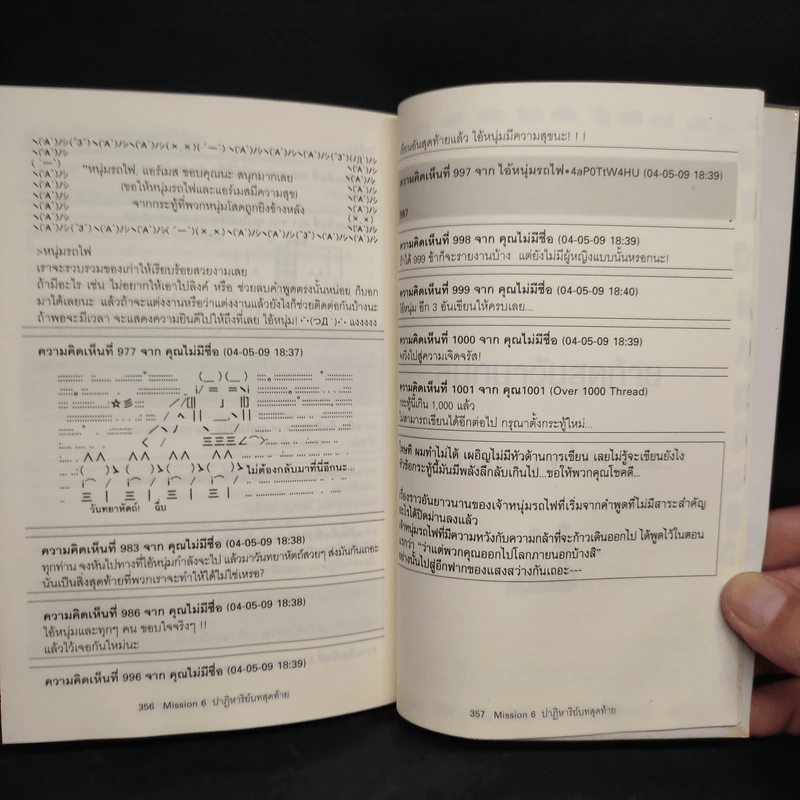 "หนุ่มรถไฟ, แอร์เมส ขอบคุณนะ สนุกมากเลย
(ขอให้หนุ่มรถไฟและแอร์เมสมีความสุข)
จากกระทู้ที่พวกหนุ่มโสดถูกยิงข้างหลัง
>หนุ่มรถไฟ
เราจะรวบรวมของเก่าให้เรียบร้อยสวยงามเลย
ถ้ามีอะไร เช่น ไม่อยากให้เอาไปลิงค์ หรือ ช่วยลบคำพูดตรงนั้นหน่อย ก็บอก
มาได้เลยนะ แล้วถ้าจะแต่งงานหรือว่าแต่งงานแล้วยังไงก็ช่วยติดต่อกันบ้างนะ
ถ้าพอจะมีเวลา จะแสดงความยินดีไปให้ถึงที่เลย ไอ้หนุ่ม! แงงงงงง
ความคิดเห็นที่ 977 จาก คุณไม่มีชื่อ (04-05-09 18:37)
ไม่ต้องกลับมาที่นี่อีกนะ...
วันทยาหัตถ์! ฉึบ
ความคิดเห็นที่ 983 จาก คุณไม่มีชื่อ (04-05-09 18:38)
ทุกท่าน จงหันไปทางที่ไอ้หนุ่มกำลังจะไป แล้วมาวันทยาหัตถ์สวยๆ ส่งมันกันเถอะ
นั่นเป็นสิ่งสุดท้ายที่พวกเราจะทำให้ได้ไม่ใช่เหรอ?
ความคิดเห็นที่ 986 จาก คุณไม่มีชื่อ (04-05-09 18:38)
ไอ้หนุ่มและทุกๆ คน ขอบใจจริงๆ !!
แล้วไว้เจอกันใหม่นะ
ความคิดเห็นที่ 996 จาก คุณไม่มีชื่อ (04-05-09 18:39)
356 Mission 6 ปาฏิหาริย์บทสุดท้าย
เขียนอันสุดท้ายแล้ว ไอ้หนุ่มมีความสุขนะ! ! !
ความคิดเห็นที่ 997 จาก ไอ้หนุ่มรถไฟ*4aP0TtW4HU (04-05-09 18:39)
997
ความคิดเห็นที่ 998 จาก คุณไม่มีชื่อ (04-05-09 18:39)
ถ้าได้ 999 ข้าก็จะรายงานบ้าง แต่ยังไม่มีผู้หญิงแบบนั้นหรอกนะ!
ความคิดเห็นที่ 999 จาก คุณไม่มีชื่อ (04-05-09 18:40)
ไอ้หนุ่ม อีก 3 อันเขียนให้ครบเลย...
ความคิดเห็นที่ 1000 จาก คุณไม่มีชื่อ (04-05-09 18:39)
จงวิ่งไปสู่ความเจิดจรัส!
ความคิดเห็นที่ 1001 จาก คุณ1001 (Over 1000 Thread)
กระทู้นี้เกิน 1,000 แล้ว
ไม่สามารถเขียนได้อีกต่อไป กรุณาตั้งกระทู้ใหม่...
โทษที ผมทำไม่ได้ เผอิญไม่มีหัวด้านการเขียน เลยไม่รู้จะเขียนยังไง
หัวข้อกระทู้นี้มันมีพลังลึกลับเกินไป...ขอให้พวกคุณโชคดี...
เรื่องราวอันยาวนานของเจ้าหนุ่มรถไฟที่เริ่มจากคำพูดที่ไม่มีสาระสำคัญ
อะไรได้ปิดม่านลงแล้ว
เจ้าหนุ่มรถไฟที่มีความหวังกับความกล้าที่จะก้าวเดินออกไป ได้พูดไว้ในตอน
แรกว่า "ว่าแต่พวกคุณออกไปโลกภายนอกบ้างสิ"
อย่างนั้นไปสู่อีกฟากของแสงสว่างกันเถอะ---
357 Mission 6 ปาฏิหาริย์บทสุดท้าย